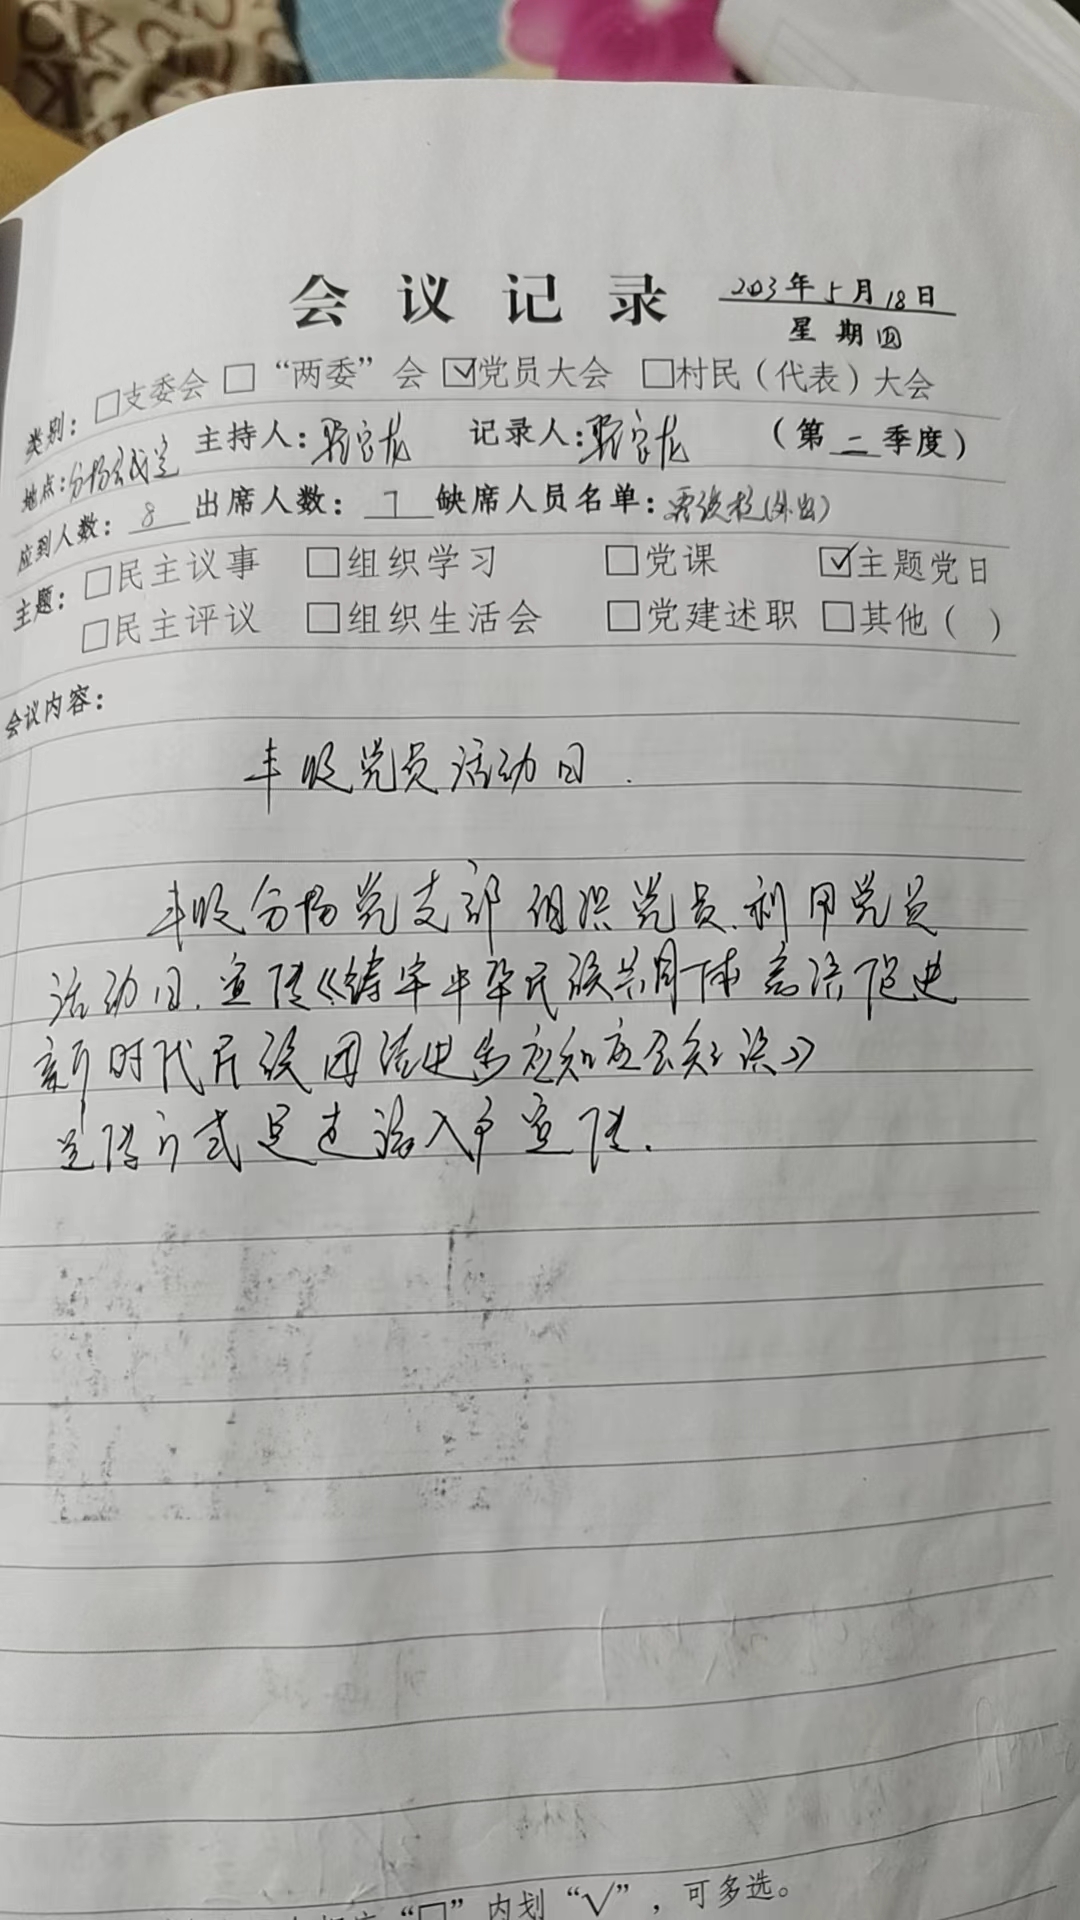 会议记录 203年5月18日
星期四
类别：□支委会 □“两委”会 ☑党员大会 □村民（代表）大会
地点：分场会议室 主持人： 记录人： （第二季度）
应到人数：8 出席人数：7 缺席人员名单：（外出）
主题：□民主议事 □组织学习 □党课 ☑主题党日
□民主评议 □组织生活会 □党建述职 □其他（ ）
会议内容：
丰收党员活动日.
丰收分场党支部组织党员.利用党员
活动日.宣传《铸牢中华民族共同体 意识促进
新时代民族团结进步应知应会知识》
宣传方式是走访入户宣传.
“□”内划“√”，可多选。